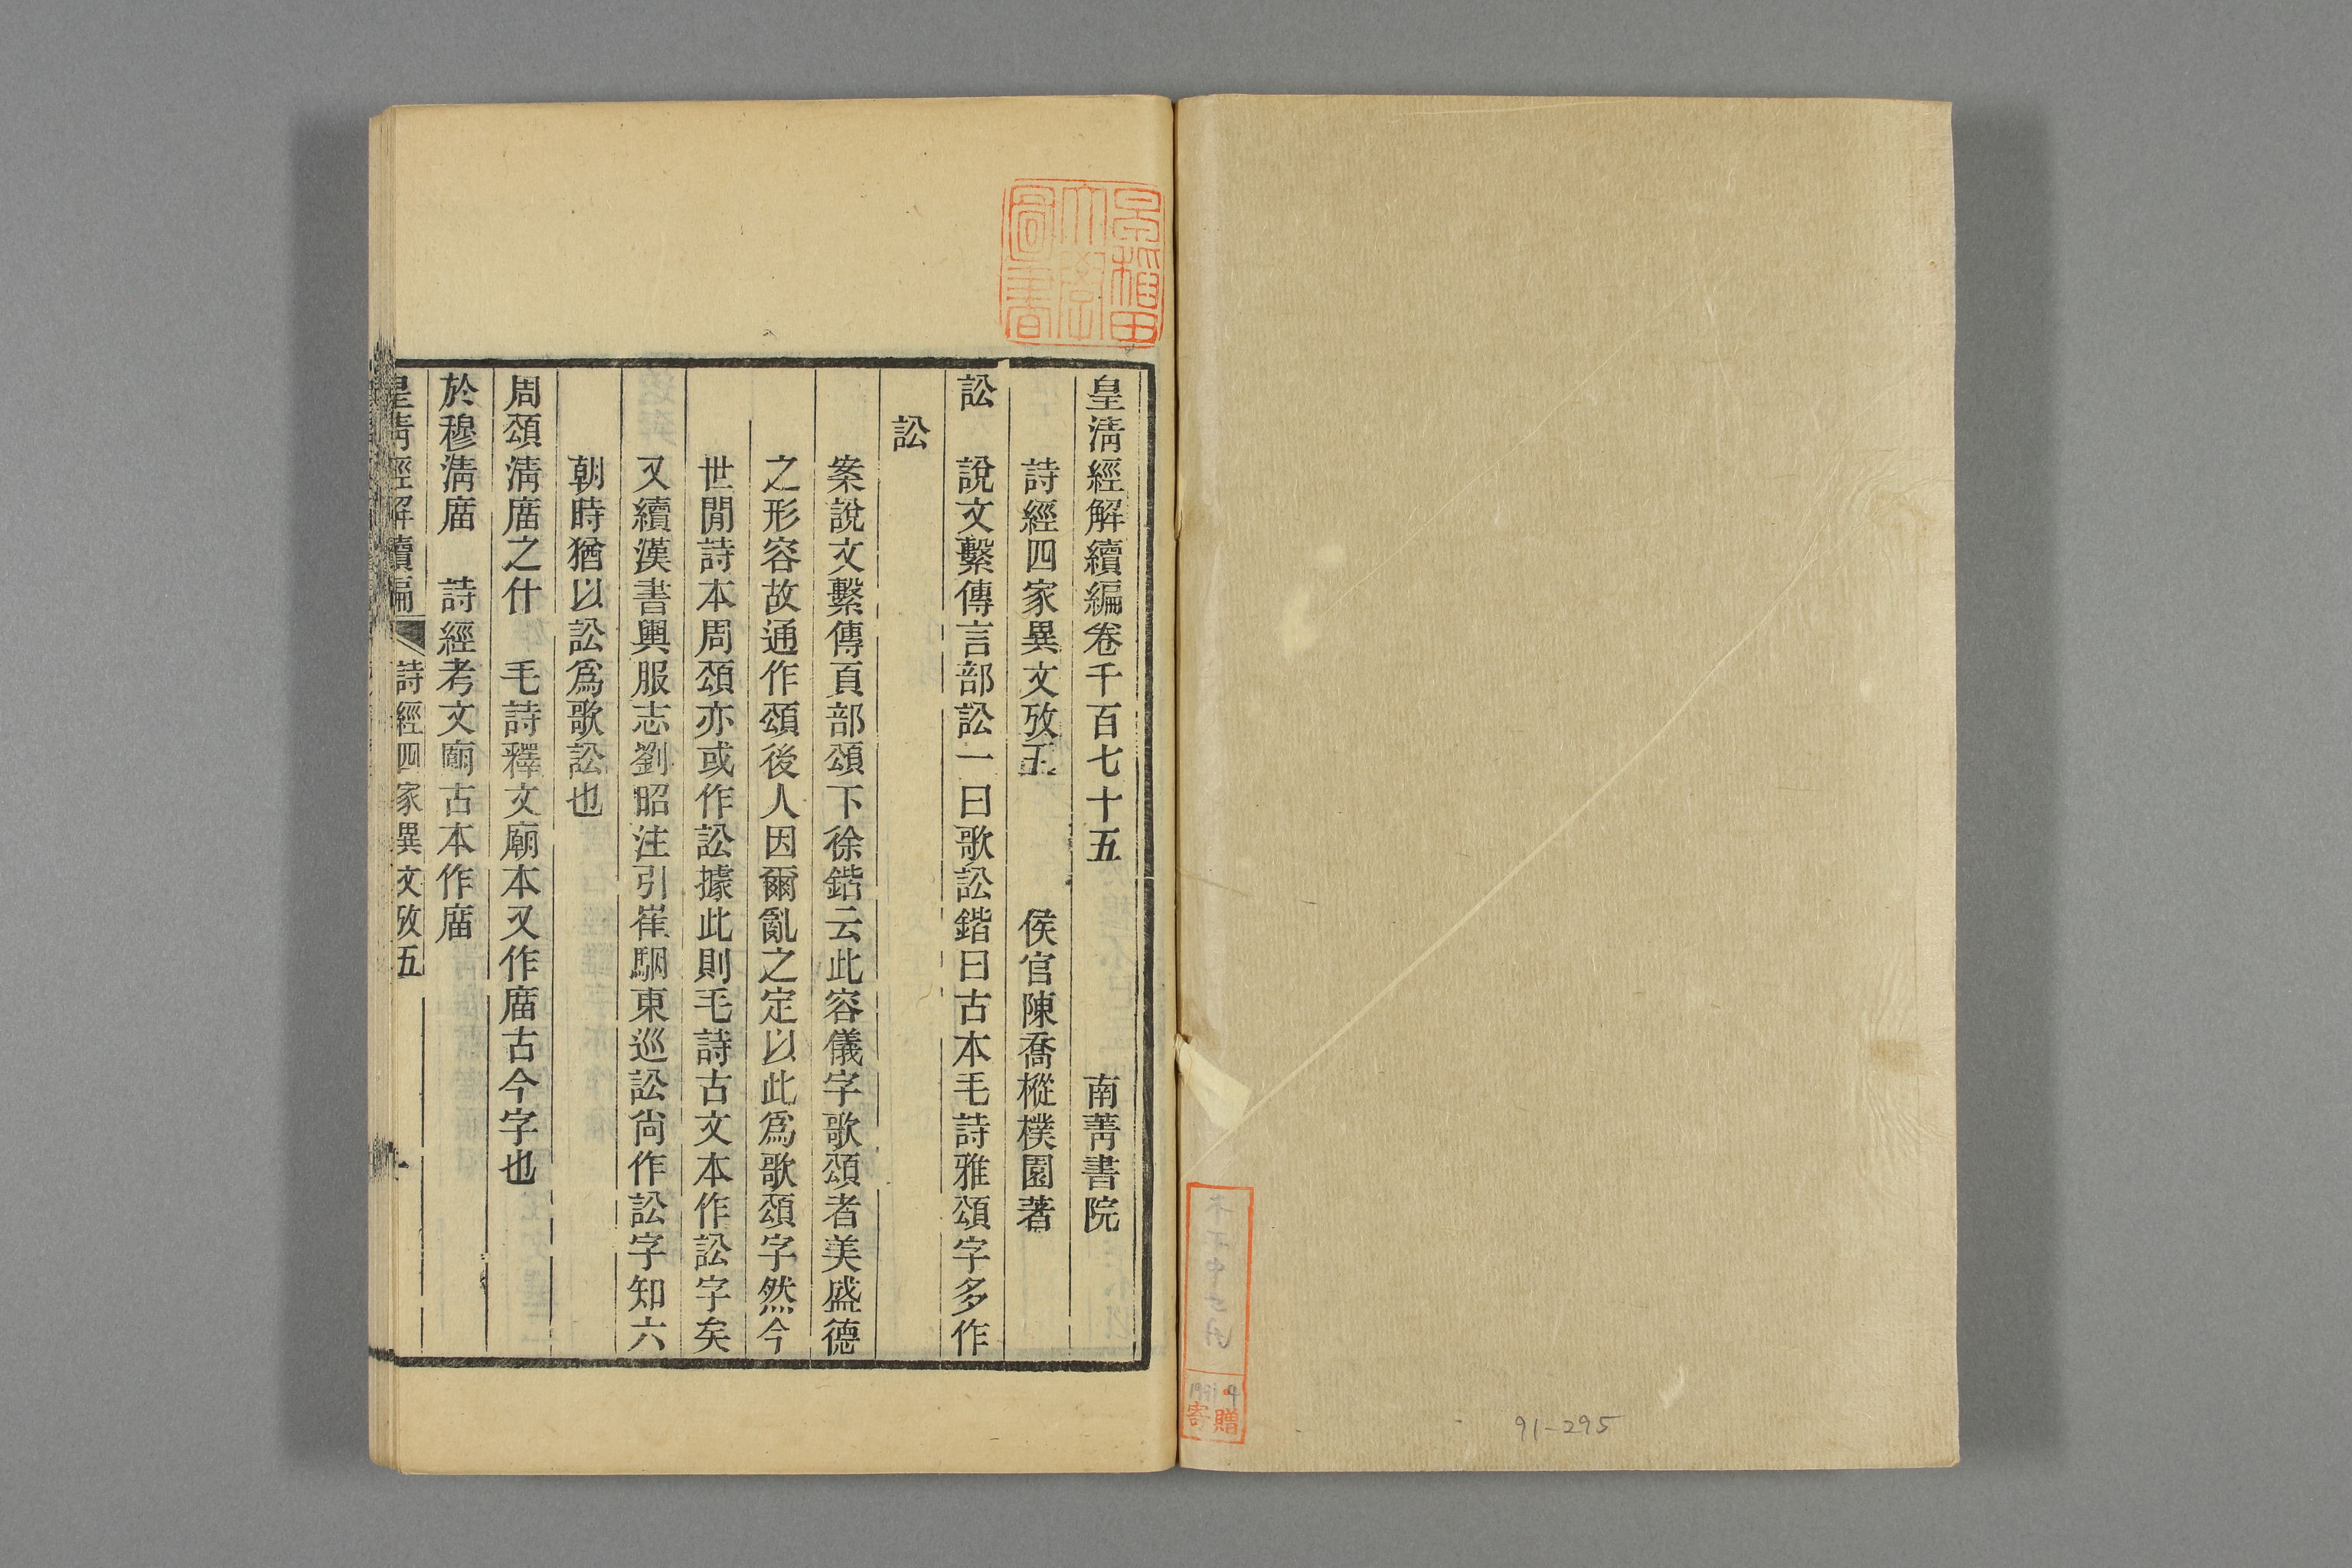 91-295
寄贈
早稲田大學圖書
皇淸經解續編卷千百七十五　南菁書院
詩經四家異文攷五　侯官陳喬樅樸園著
訟　說文繫傳言部訟一曰歌訟鍇曰古本毛詩雅頌字多作
訟
案說文繫傳頁部頌下徐鍇云此容儀字歌頌者美盛德
之形容故通作頌後人因爾亂之定以此爲歌頌字然今
世閒詩本周頌亦或作訟據此則毛詩古文本作訟字矣
又續漢書輿服志劉昭注引崔駰東巡訟尙作訟字知六
朝時猶以訟爲歌訟也
周頌淸庿之什　毛詩釋文廟本又作庿古今字也
於穆淸庿　詩經考文廟古本作庿
皇淸經解續編　詩經四家異文攷五